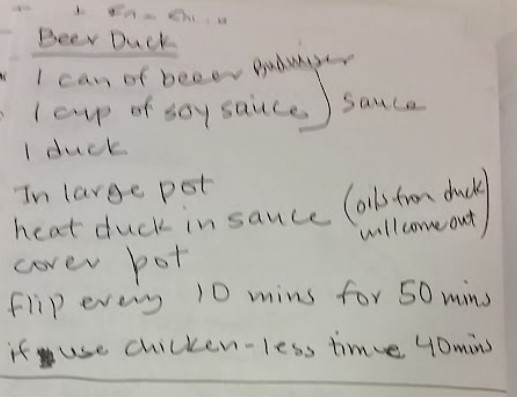 Beer Duck
1 can of beeer Budwiser
1 cup of soy sauce ) sauce
1 duck
In large pot
heat duck in sauce (oils from duck will come out)
cover pot
flip every 10 mins for 50 mins
if use chicken - less time 40mins